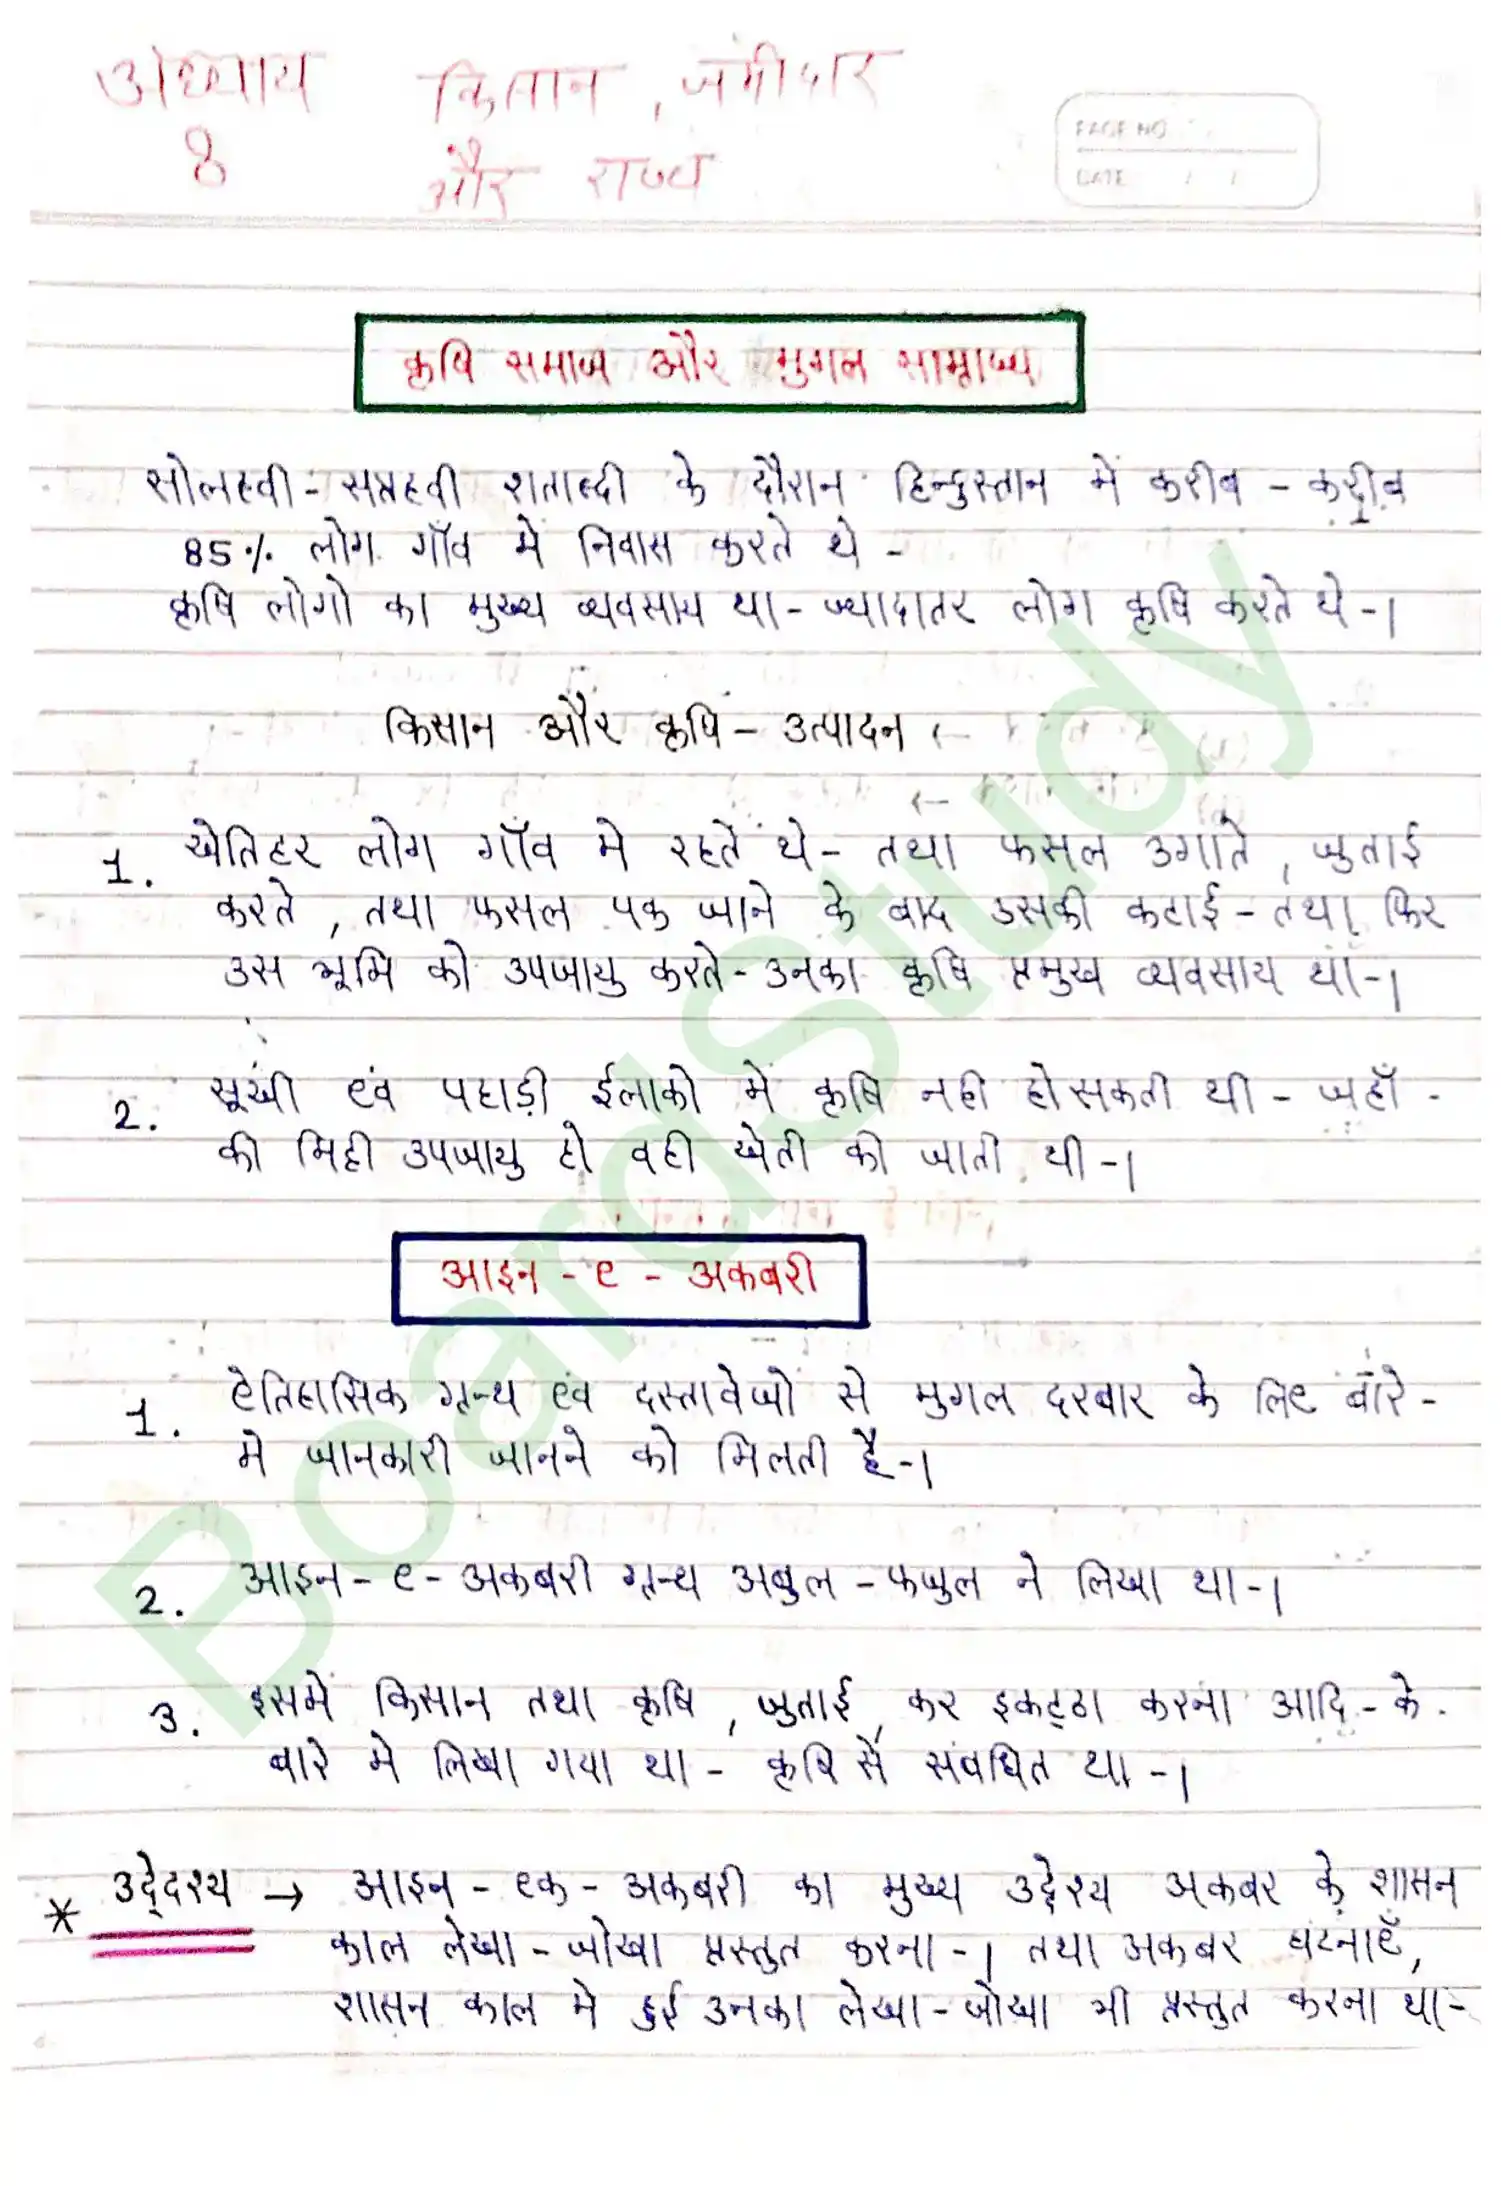 अध्याय किसान, जमीदार
8 और राज्य
PAGE NO
DATE / /
कृषि समाज और मुगल साम्राज्य
सोलहवी - सत्रहवी शताब्दी के दौरान हिन्दुस्तान में करीब - करीब
85% लोग गाँव में निवास करते थे -
कृषि लोगो का मुख्य व्यवसाय था - ज्यादातर लोग कृषि करते थे -।
किसान और कृषि - उत्पादन ←
1. खेतिहर लोग गाँव मे रहते थे - तथा फसल उगाते, जुताई
करते, तथा फसल पक जाने के बाद उसकी कटाई - तथा फिर
उस भूमि को उपजायु करते - उनका कृषि प्रमुख व्यवसाय था -।
2. सूखी एवं पहाड़ी ईलाको में कृषि नही हो सकती थी - जहाँ -
की मिट्टी उपजायु हो वही खेती की जाती थी -।
आइन - ए - अकबरी
1. ऐतिहासिक ग्रन्थ एवं दस्तावेजों से मुगल दरबार के लिए बारे -
मे जानकारी जानने को मिलती है -।
2. आइन - ए - अकबरी ग्रन्थ अबुल - फजुल ने लिखा था -।
3. इसमें किसान तथा कृषि, जुताई, कर इकट्ठा करना आदि - के
बारे मे लिखा गया था - कृषि से संबधित था -।
* उद्देदश्य → आइन - एक - अकबरी का मुख्य उद्देश्य अकबर के शासन
काल लेखा - जोखा प्रस्तुत करना -। तथा अकबर घटनाएँ,
शासन काल मे हुई उनका लेखा - जोखा भी प्रस्तुत करना था -
BoardStudy